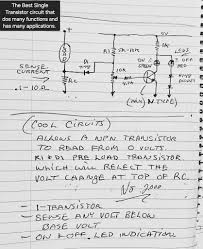 The Best Single
Transistor circuit that
does many functions and
has many applications.
5V
R1
5K-10K
1K
LED1
D1
OFF
RED
SENSE
CURRENT
.1-10A
RC
(ANY NTYPE)
(COOL CIRCUITS)
ALLOWS A NPN TRANSISTOR
TO READ FROM 0 VOLTS.
R1 & D1 PRE LOAD TRANSISTOR
WHICH WILL REFLECT THE
VOLT CHANGE AT TOP OF RC.
- 1-TRANSISTOR
- SENSE ANY VOLT BELOW
BASE VOLT
- ON & OFF LED INDICATION